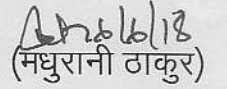 6/6/18
(मधुरानी ठाकुर)